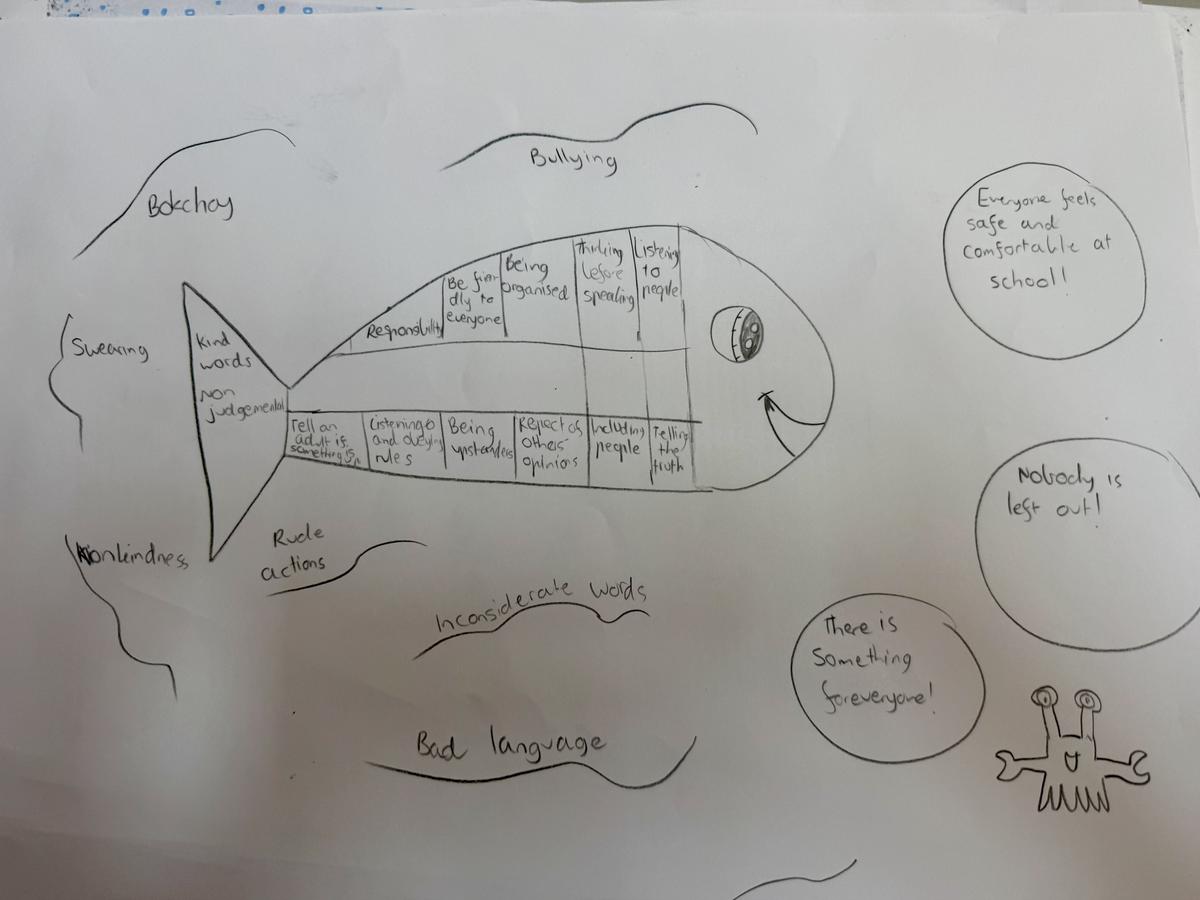 Bullying
Bokchoy
Everyone feels
safe and
comfortable at
school!
Responsibility
Be frien
dly to
everyone
Being
organised
thinking
before
speaking
Listening
to
people
Swearing
Kind
words
Non
judgemental
Tell an
adult if
something is
Listening
and obeying
rules
Being
upstanders
others'
opinions
Including
people
Telling
the
truth
Nobody is
left out!
Nonkindness
Rude
actions
Inconsiderate words
There is
Something
foreveryone!
Bad language